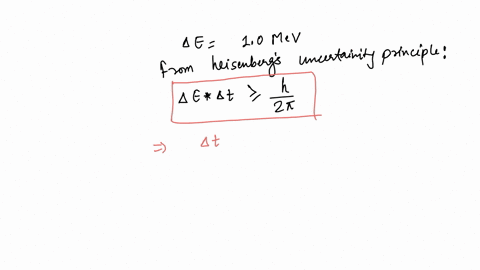 Δ E = 1.0 MeV
from heisenberg's uncertainity principle:
Δ E * Δ t ≥ h / 2π
⇒ Δ t